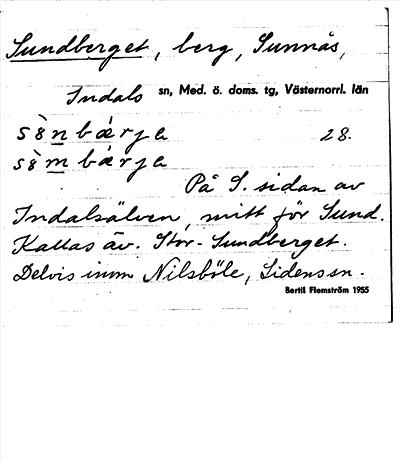 Sundberget, berg, Sunnås,
Indals sn, Med. ö. doms. tg, Västernorrl. län
sö̀nbǽrje 28.
sö̀mbǽrje
På S. sidan av
Indalsälven, mitt för Sund.
Kallas äv. Stor-Sundberget.
Delvis inom Nilsböle, Lidens sn.
Bertil Flemström 1955